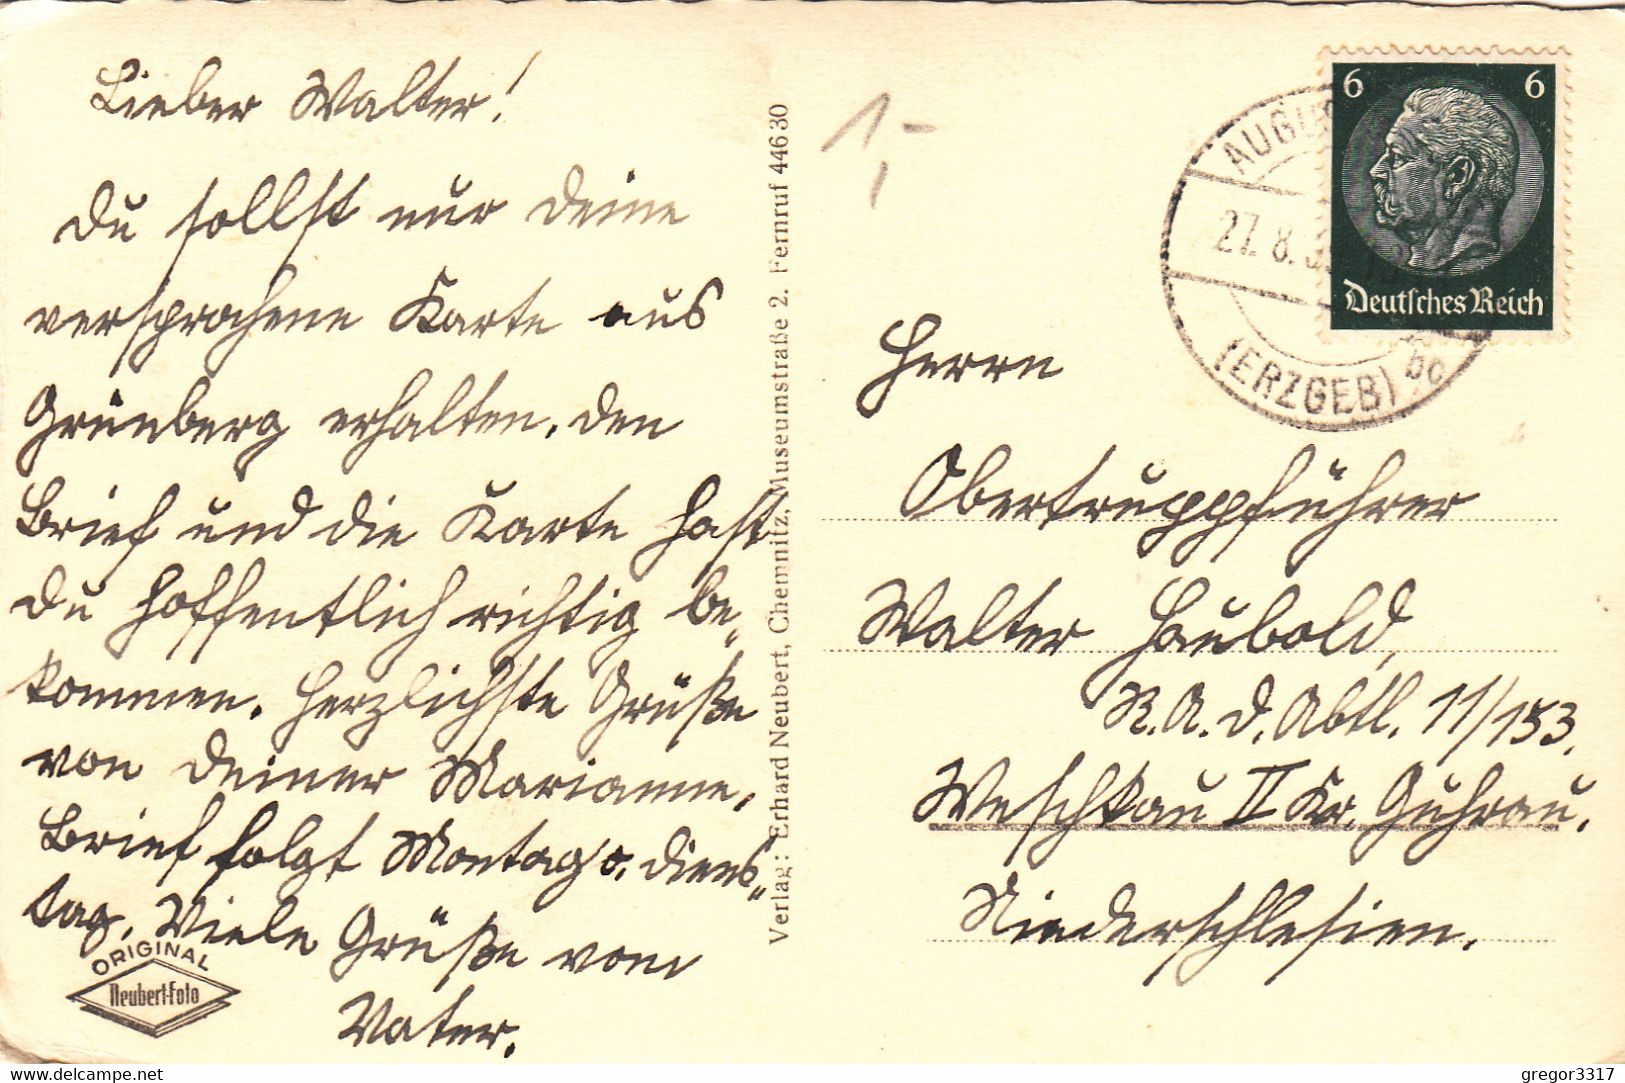 Lieber Walter!
Du sollst nur deine
versprochene Karte aus
Grünberg erhalten. Den
Brief und die Karte hast
du hoffentlich richtig be„
kommen. Herzlichste Grüße
von deiner Marianne.
Brief folgt Montag o. Diens„
tag. Viele Grüße vom
Vater.
ORIGINAL
Neubert-Foto
Verlag: Erhard Neubert, Chemnitz, Museumstraße 2. Fernruf 44630
1,-
6 6
Deutsches Reich
27. 8.
(ERZGEB)
Herrn
Obertruppführer
Walter Haubold,
R.A.D. Abtl. 11/153.
Weschkau II Kr. Guhrau.
Niederschlesien.
www.delcampe.net
gregor3317